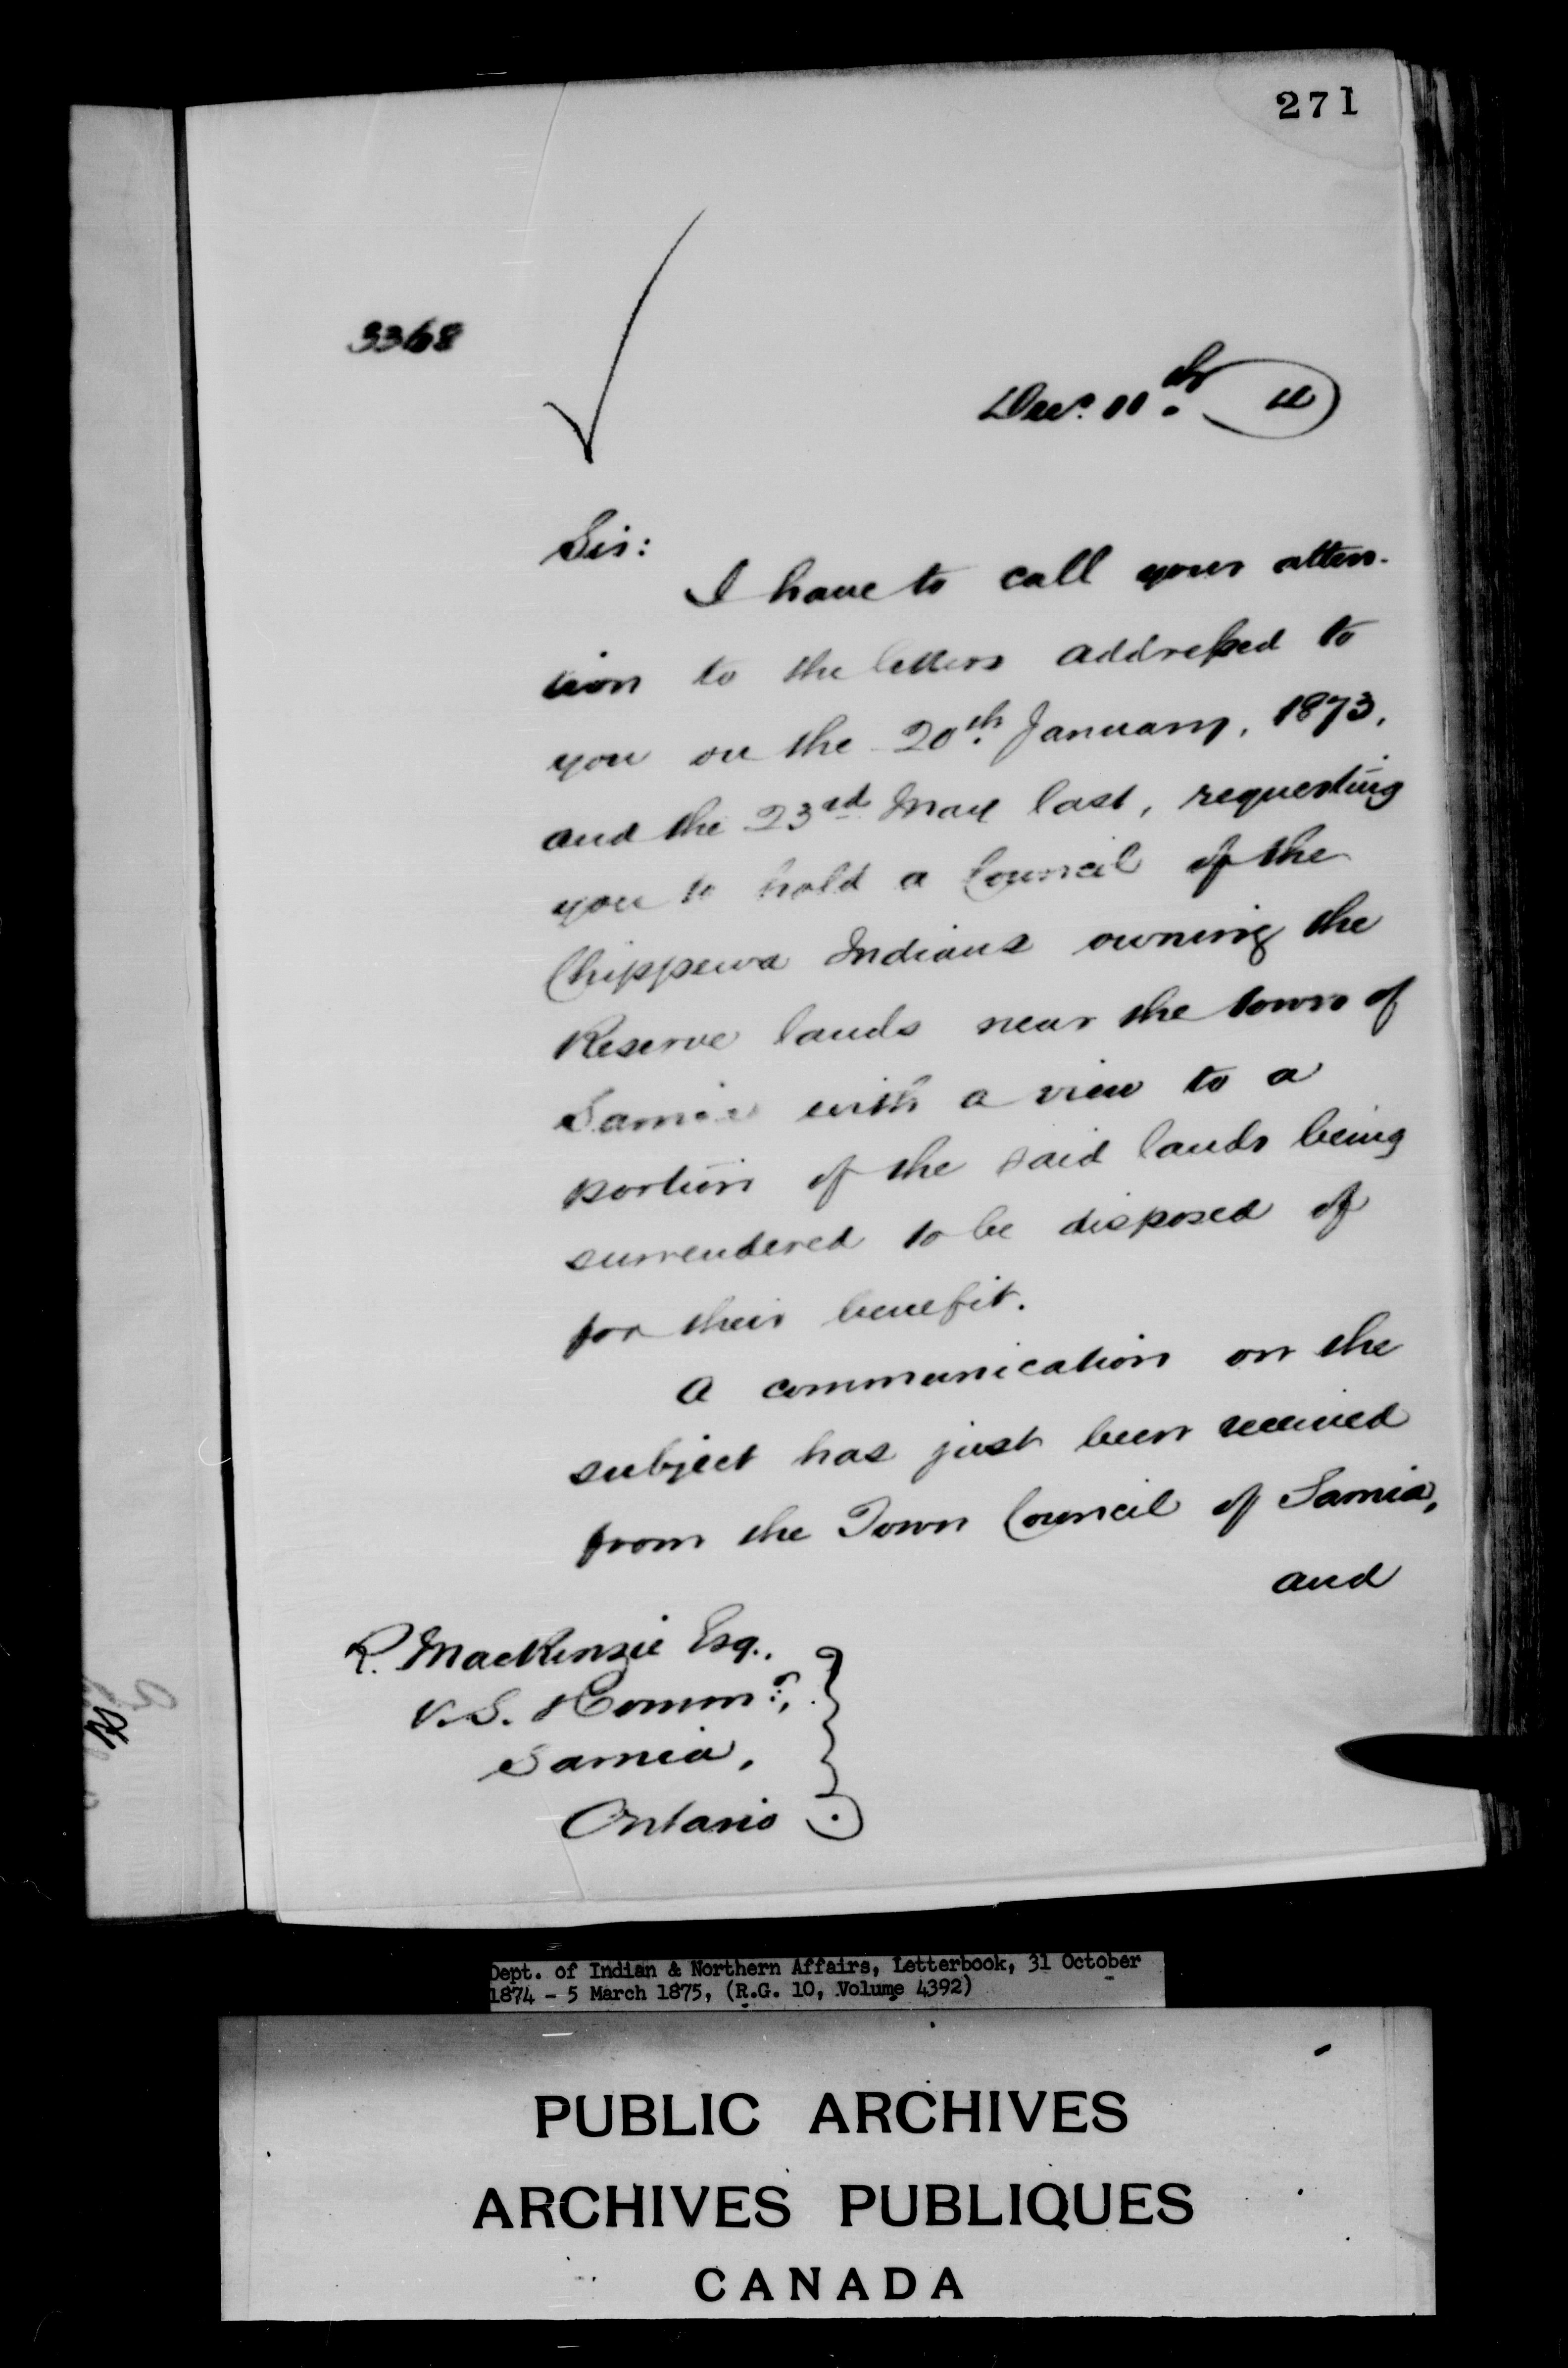 271
3368
Decr. 11th
Sir:
I have to call your atten-
tion to the letters addressed to
you on the 20th January, 1873,
and the 23rd May last, requesting
you to hold a Council of the
Chippewa Indians owning the
Reserve lands near the town of
Sarnia with a view to a
portion of the said lands being
surrendered to be disposed of
for their benefit.
A communication on the
subject has just been received
from the Town Council of Sarnia,
and
R. MacKenzie Esq.,
V.S. & Commr.,
Sarnia,
Ontario.
Dept. of Indian & Northern Affairs, Letterbook, 31 October
1874 - 5 March 1875, (R.G. 10, Volume 4392)
PUBLIC ARCHIVES
ARCHIVES PUBLIQUES
CANADA